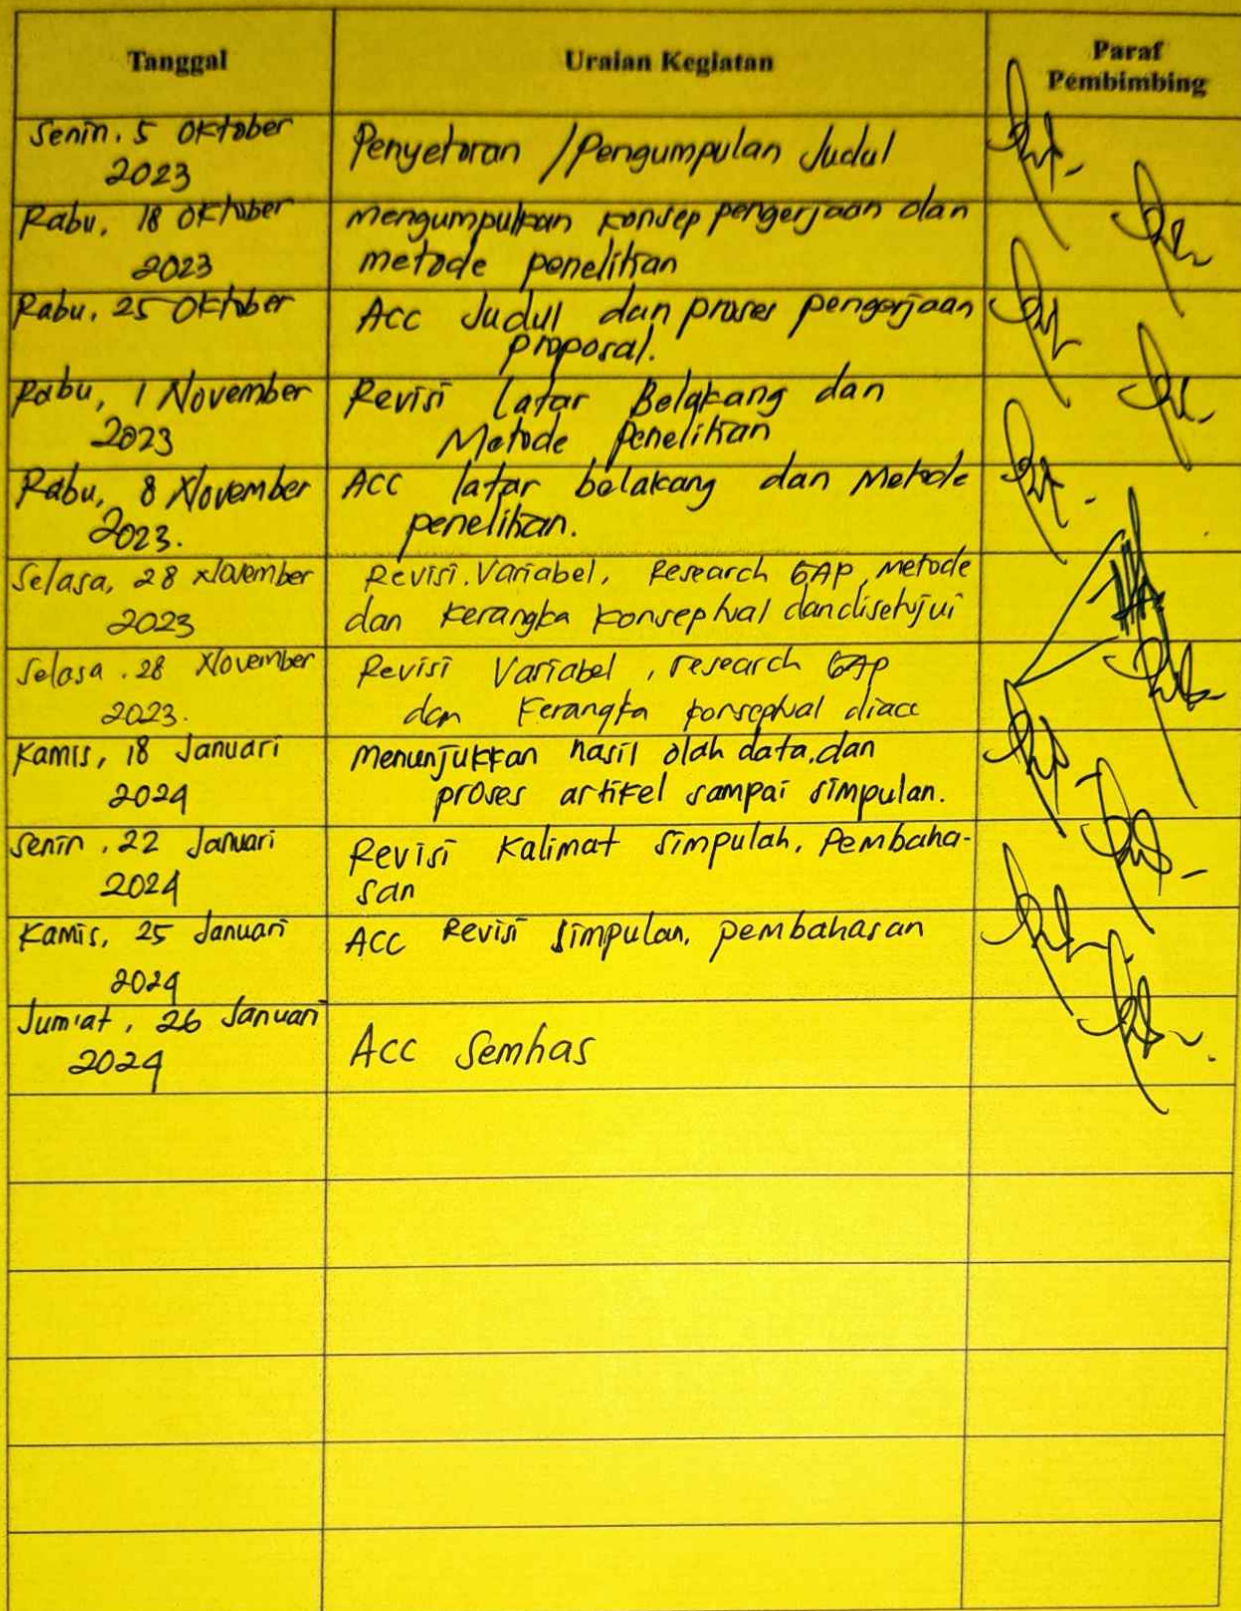 Tanggal
Uraian Kegiatan
Paraf
Pembimbing
Senin, 5 Oktober
2023
Penyetoran / Pengumpulan Judul
Rabu, 18 Oktober
2023
Mengumpulkan konsep pengerjaan dan
metode penelitian
Rabu, 25 Oktober
Acc Judul dan proses pengerjaan
proposal.
Rabu, 1 November
2023
Revisi Latar Belakang dan
Metode Penelitian
Rabu, 8 November
2023.
ACC latar belakang dan Metode
penelitian.
Selasa, 28 November
2023
Revisi Variabel, Research GAP, Metode
dan Kerangka Konseptual dan disetujui
Selasa, 28 November
2023.
Revisi Variabel, research GAP
dan Kerangka konseptual diacc
Kamis, 18 Januari
2024
Menunjukkan hasil olah data, dan
proses artikel sampai simpulan.
Senin, 22 Januari
2024
Revisi Kalimat Simpulah, Pembaha-
san
Kamis, 25 Januari
2024
ACC Revisi Simpulan, pembahasan
Jum'at, 26 Januari
2024
Acc Semhas